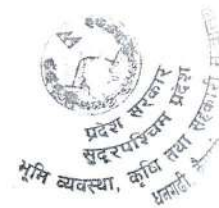 प्रदेश सरकार
सुदूरपश्चिम प्रदेश
भूमि व्यवस्था, कृषि तथा सहकारी
धनगढी,